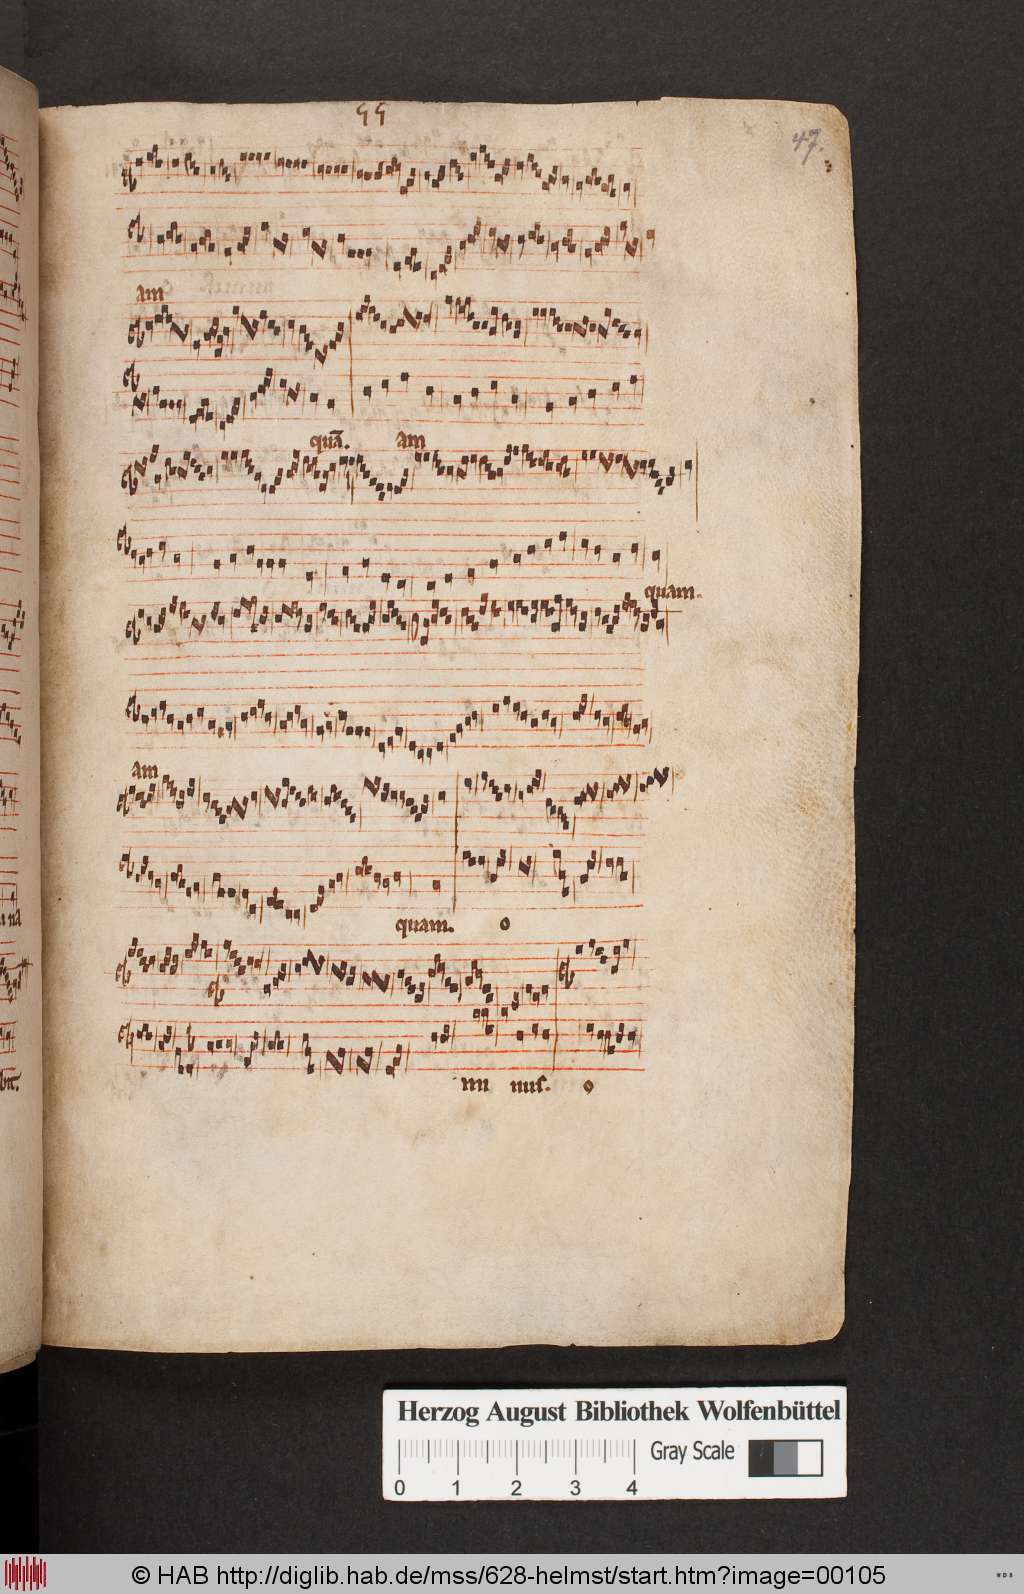 55
47.
am
quā. am
quam.
am
quam. o
mi nus. o
bit.
Herzog August Bibliothek Wolfenbüttel
Gray Scale
0 1 2 3 4
© HAB http://diglib.hab.de/mss/628-helmst/start.htm?image=00105